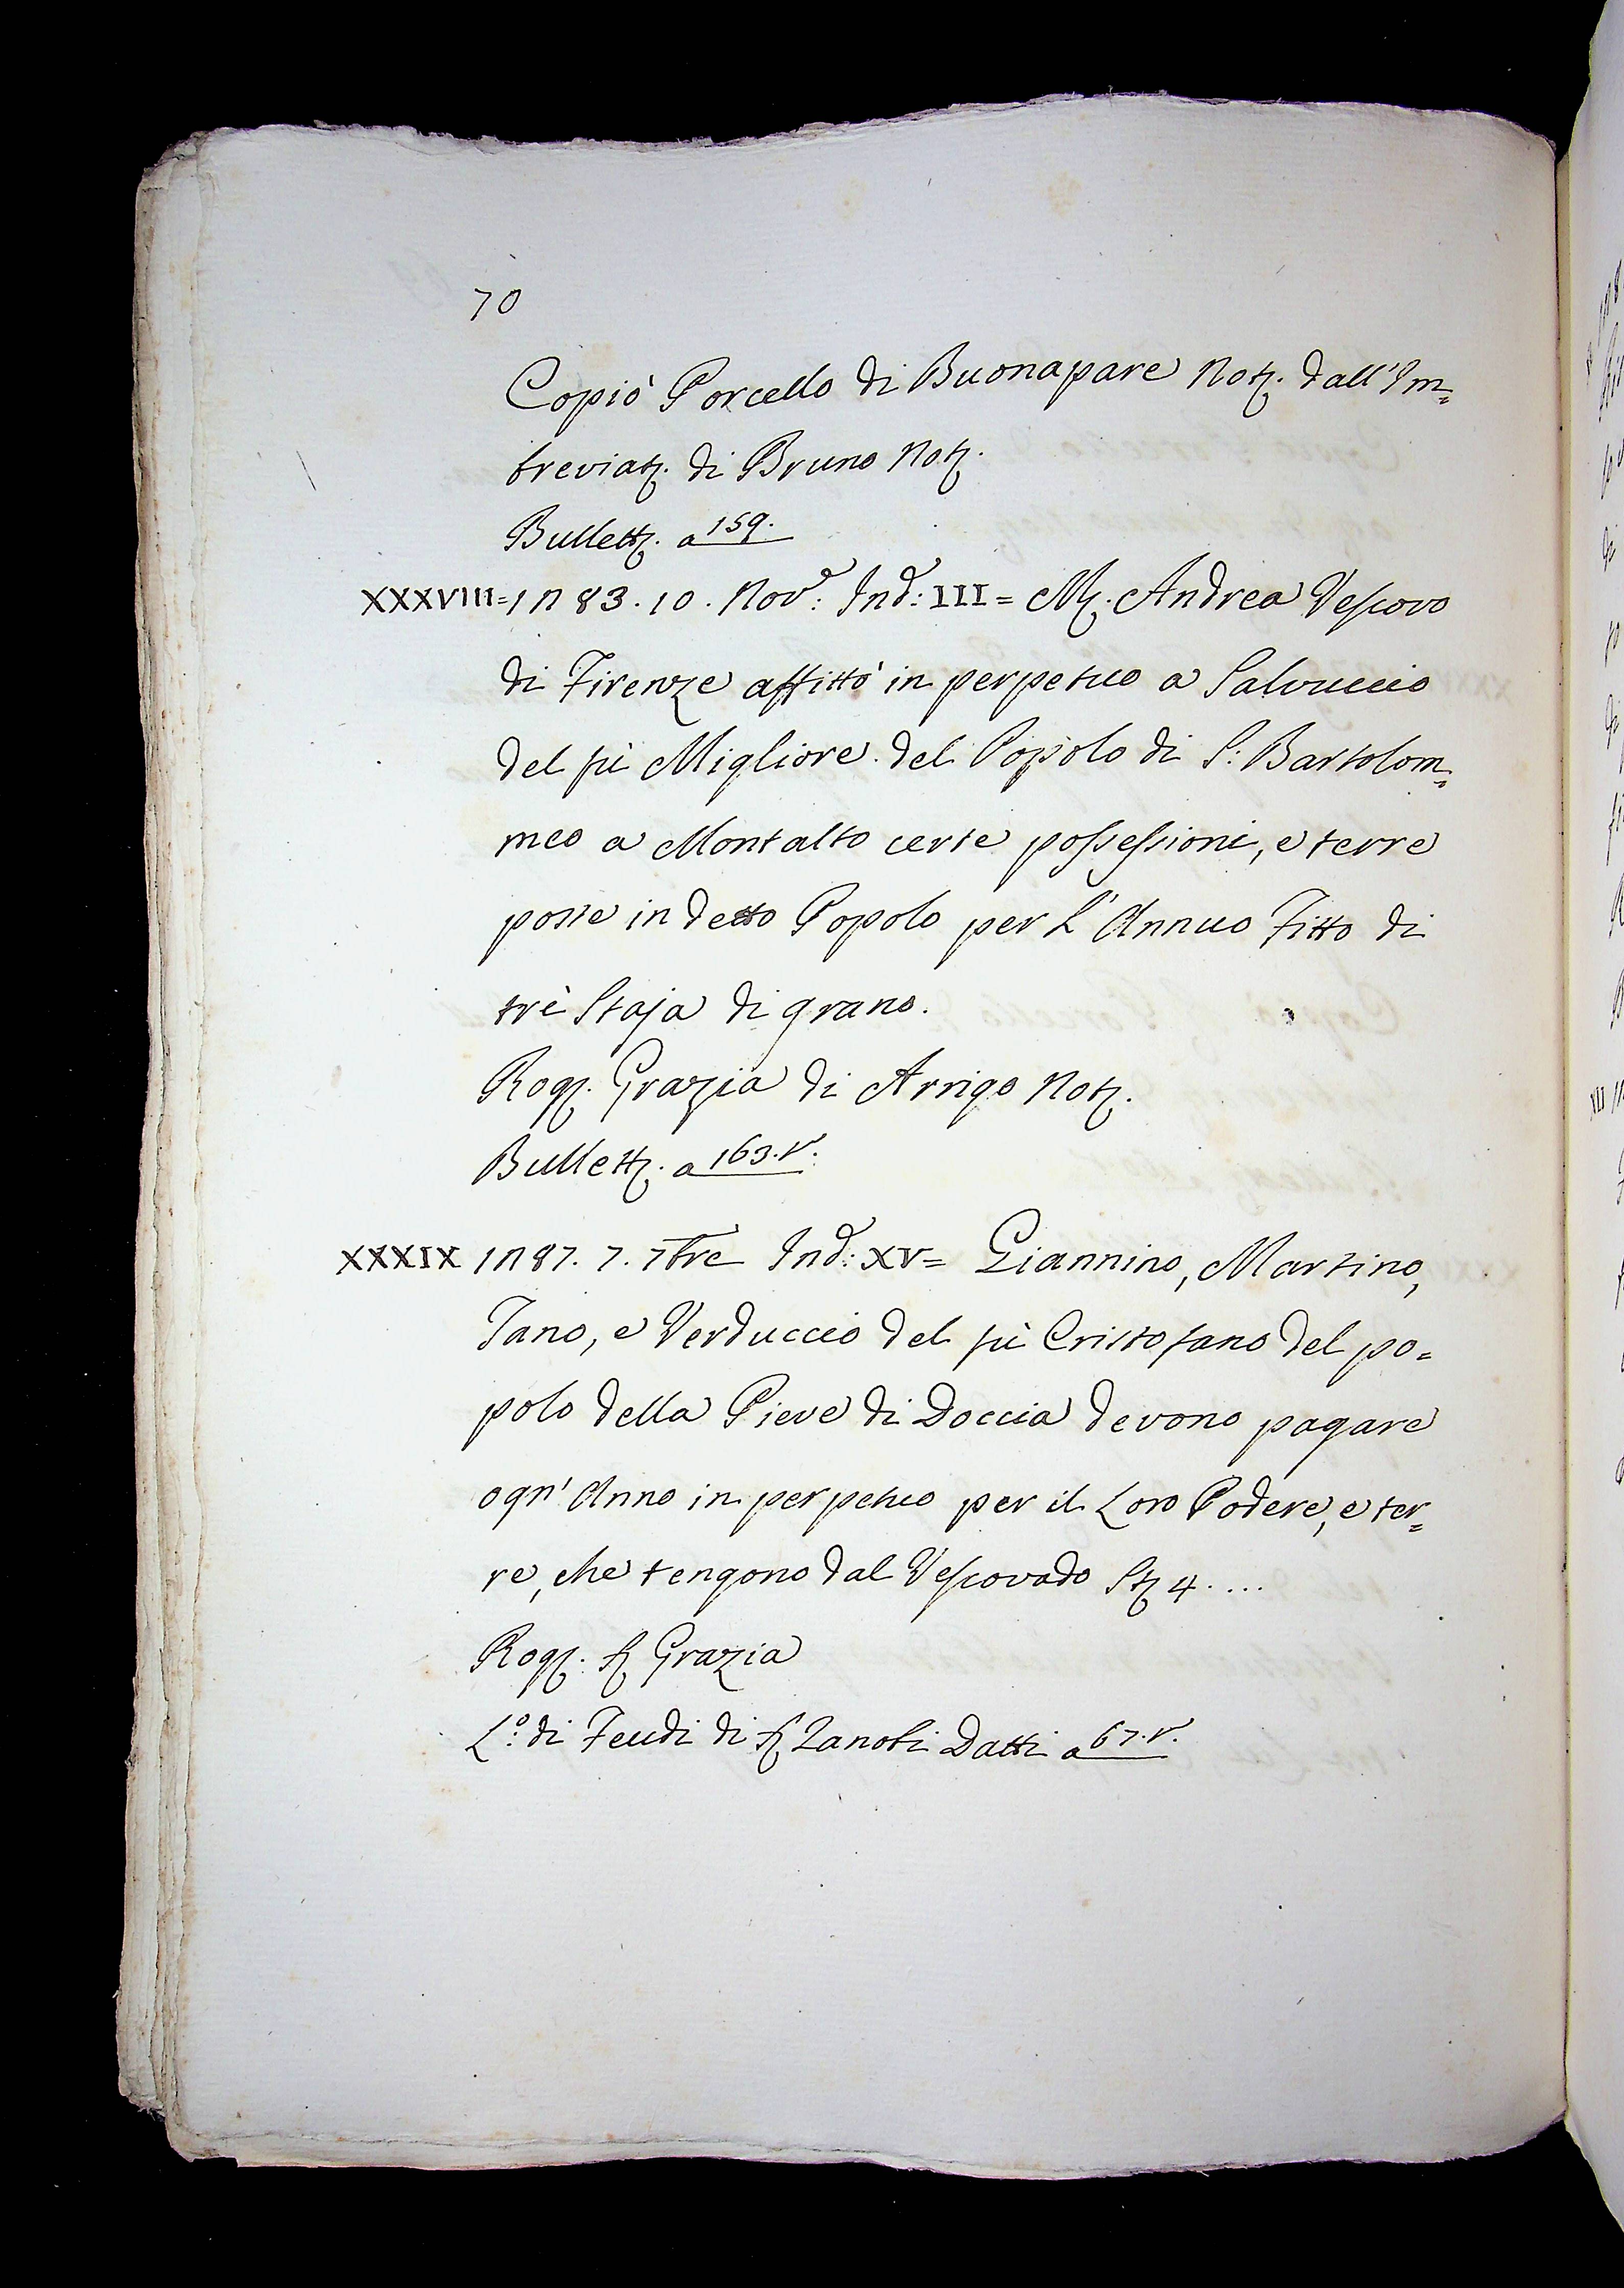 70
Copiò Porcello di Buonapare Not. dall'Im=
breviat. di Bruno Not.
Bullett. a 159.
XXXVIII=1283. 10. Nov.e Ind: III= M. Andrea Vescovo
di Firenze affittò in perpetuo a Salvuccio
del fù Migliore del Popolo di S: Bartolom=
meo a Montalto certe possessioni, e terre
poste in detto Popolo per l'Annuo Fitto di
trè Staja di grano.
Rog. Grazia di Arrigo Not.
Bullett. a 163.v.
XXXIX 1287. 7. 7bre Ind: XV= Giannino, Martino,
Tano, e Verduccio del fù Cristofano del po=
polo della Pieve di Doccia devono pagare
ogn'Anno in perpetuo per il Loro Podere, e ter=
re, che tengono dal Vescovado St. 4....
Rog. S. Grazia
L.o di Feudi di S. Zanobi Datti a 67.v.